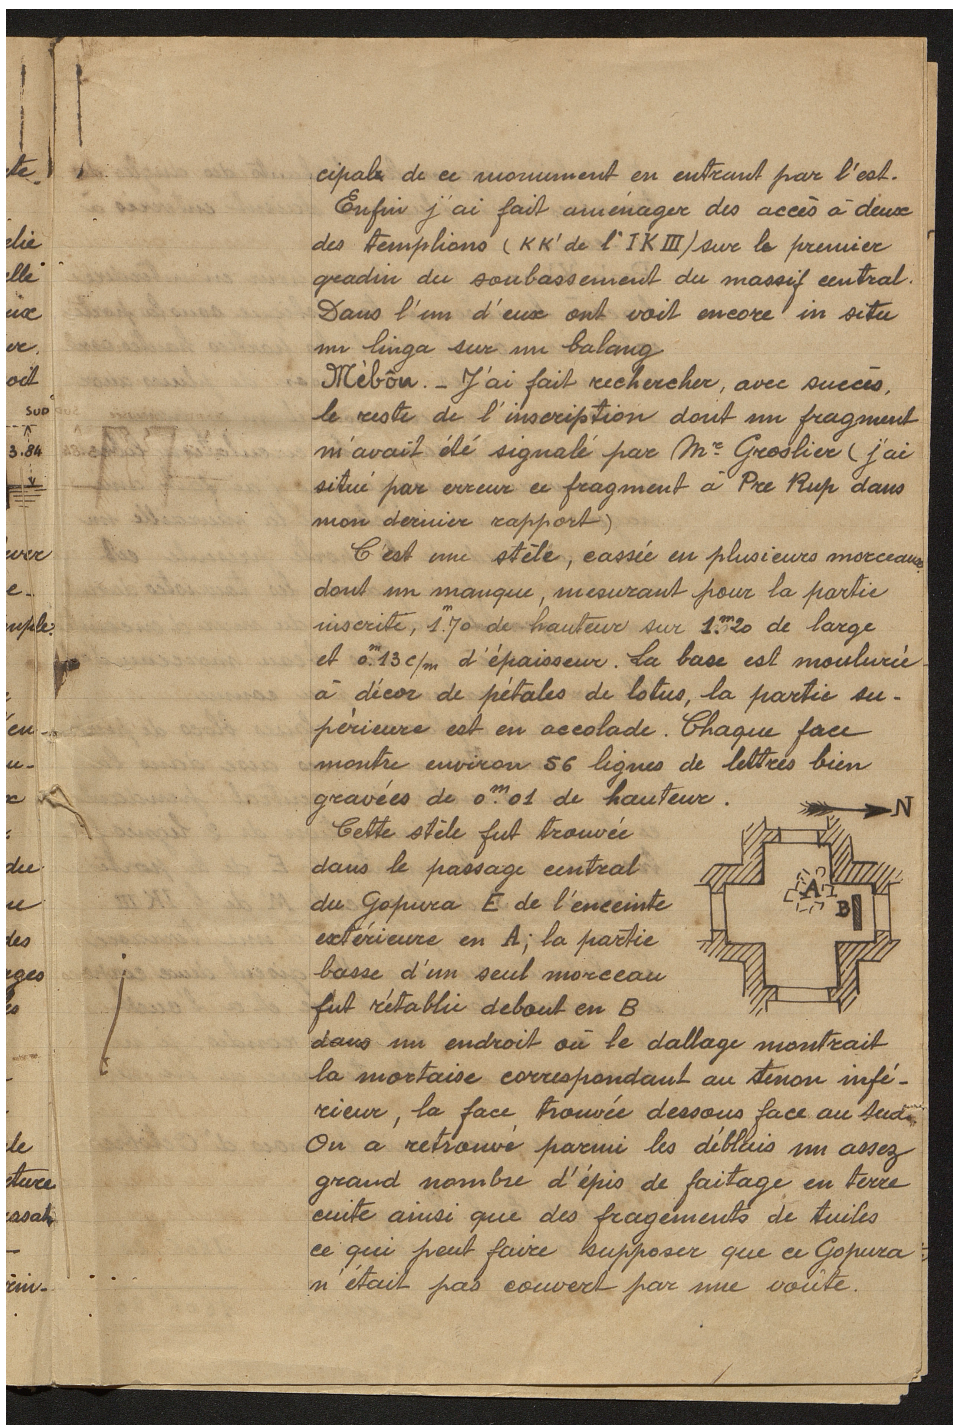 cipale de ce monument en entrant par l'est.
Enfin j'ai fait aménager des accès à deux
des templions (KK' de l'IK III) sur le premier
gradin du soubassement du massif central.
Dans l'un d'eux ont voit encore in situ
un linga sur un balang
Mébôn. - J'ai fait rechercher, avec succès,
le reste de l'inscription dont un fragment
m'avait été signalé par Mr Groslier (j'ai
situé par erreur ce fragment à Pre Rup dans
mon dernier rapport)
C'est une stèle, cassée en plusieurs morceaux
dont un manque, mesurant pour la partie
inscrite, 1m.70 de hauteur sur 1.m20 de large
et 0m.13 c/m d'épaisseur. La base est moulurée
à décor de pétales de lotus, la partie su-
périeure est en accolade. Chaque face
montre environ 56 lignes de lettres bien
gravées de 0m.01 de hauteur.
Cette stèle fut trouvée
dans le passage central
du Gopura E de l'enceinte
extérieure en A; la partie
basse d'un seul morceau
fut rétablie debout en B
dans un endroit où le dallage montrait
la mortaise correspondant au tenon infé-
rieur, la face trouvée dessous face au Sud.
On a retrouvé parmi les déblais un assez
grand nombre d'épis de faitage en terre
cuite ainsi que des fragements de tuiles
ce qui peut faire supposer que ce Gopura
n'était pas couvert par une voûte.
N
A
B
SUD
3.84